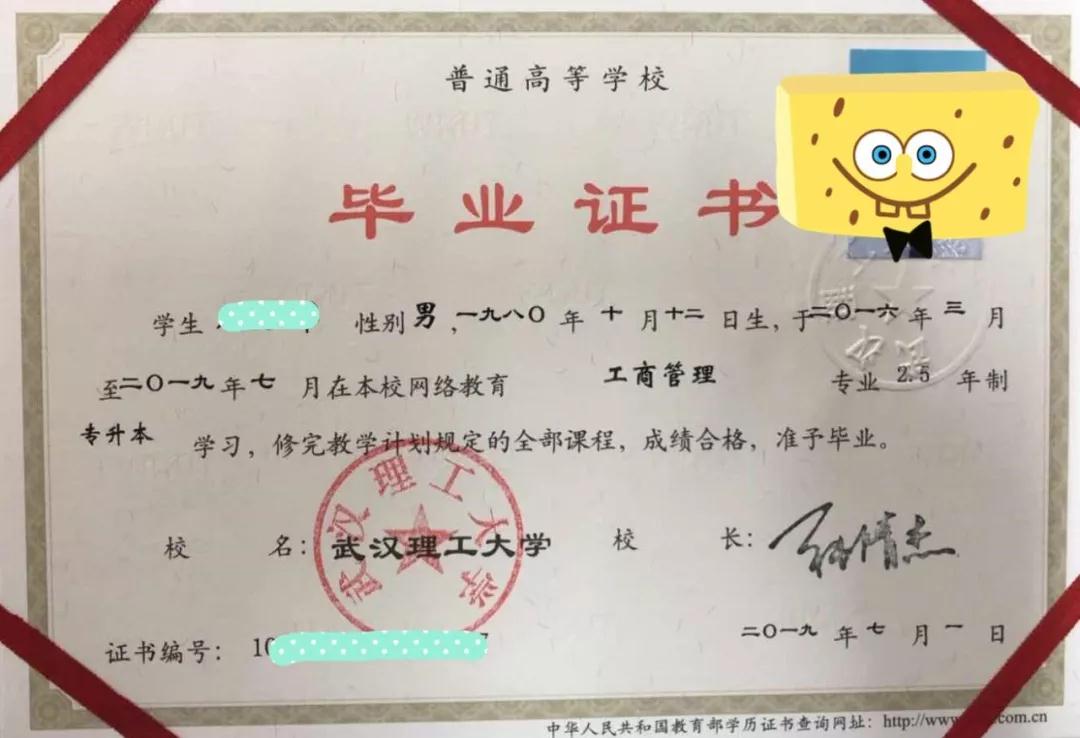 普通高等学校
毕业证书
学生 性别 男，一九八〇年十月十二日生，于二〇一六年三月
至二〇一九年七月在本校网络教育 工商管理 专业 2.5 年制
专升本 学习，修完教学计划规定的全部课程，成绩合格，准予毕业。
校 名：武汉理工大学 校 长：
武汉理工大学
证书编号： 二〇一九年七月一日
中华人民共和国教育部学历证书查询网址：http://www. .com.cn